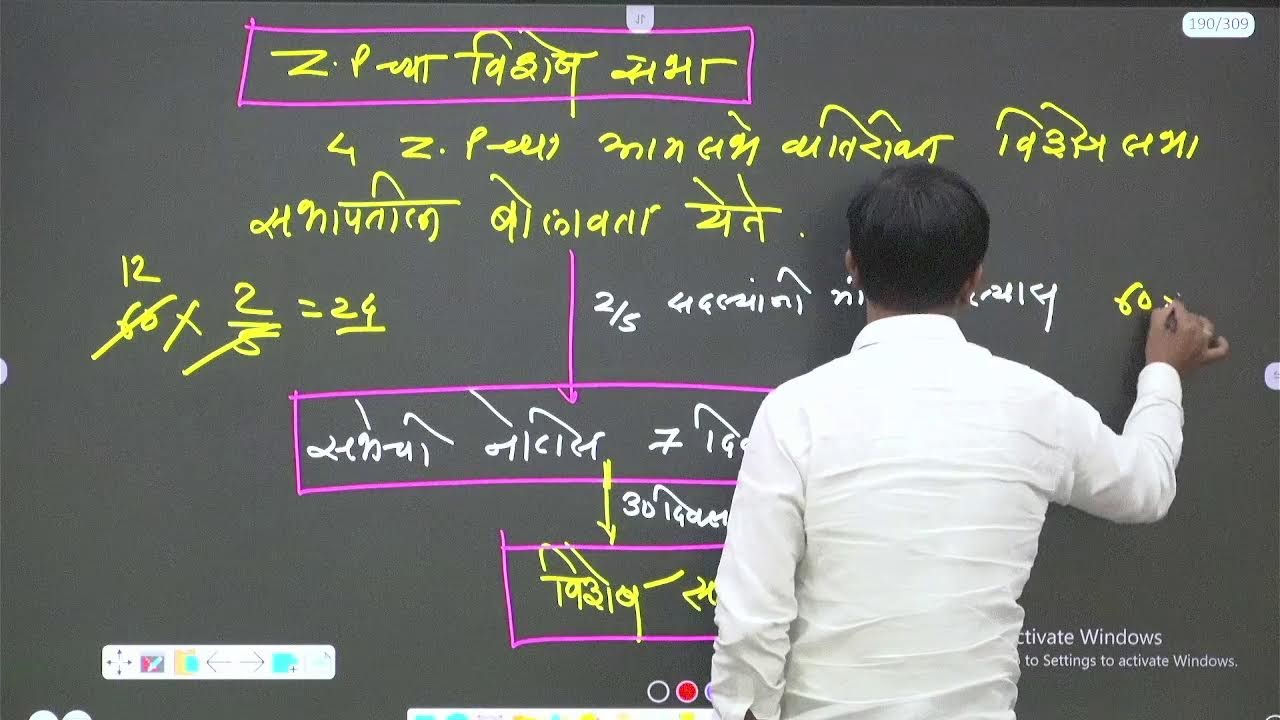 190/309
Z.P च्या विशेष सभा
4 Z.P च्या आमसभे व्यतिरिक्त विशेष सभा
सभापतीला बोलावता येते.
12
60 × 2/5 = २४
2/5 सदस्यांनी
सभेची नोटीस 7
30 दिवस
विशेष
ctivate Windows
to Settings to activate Windows.